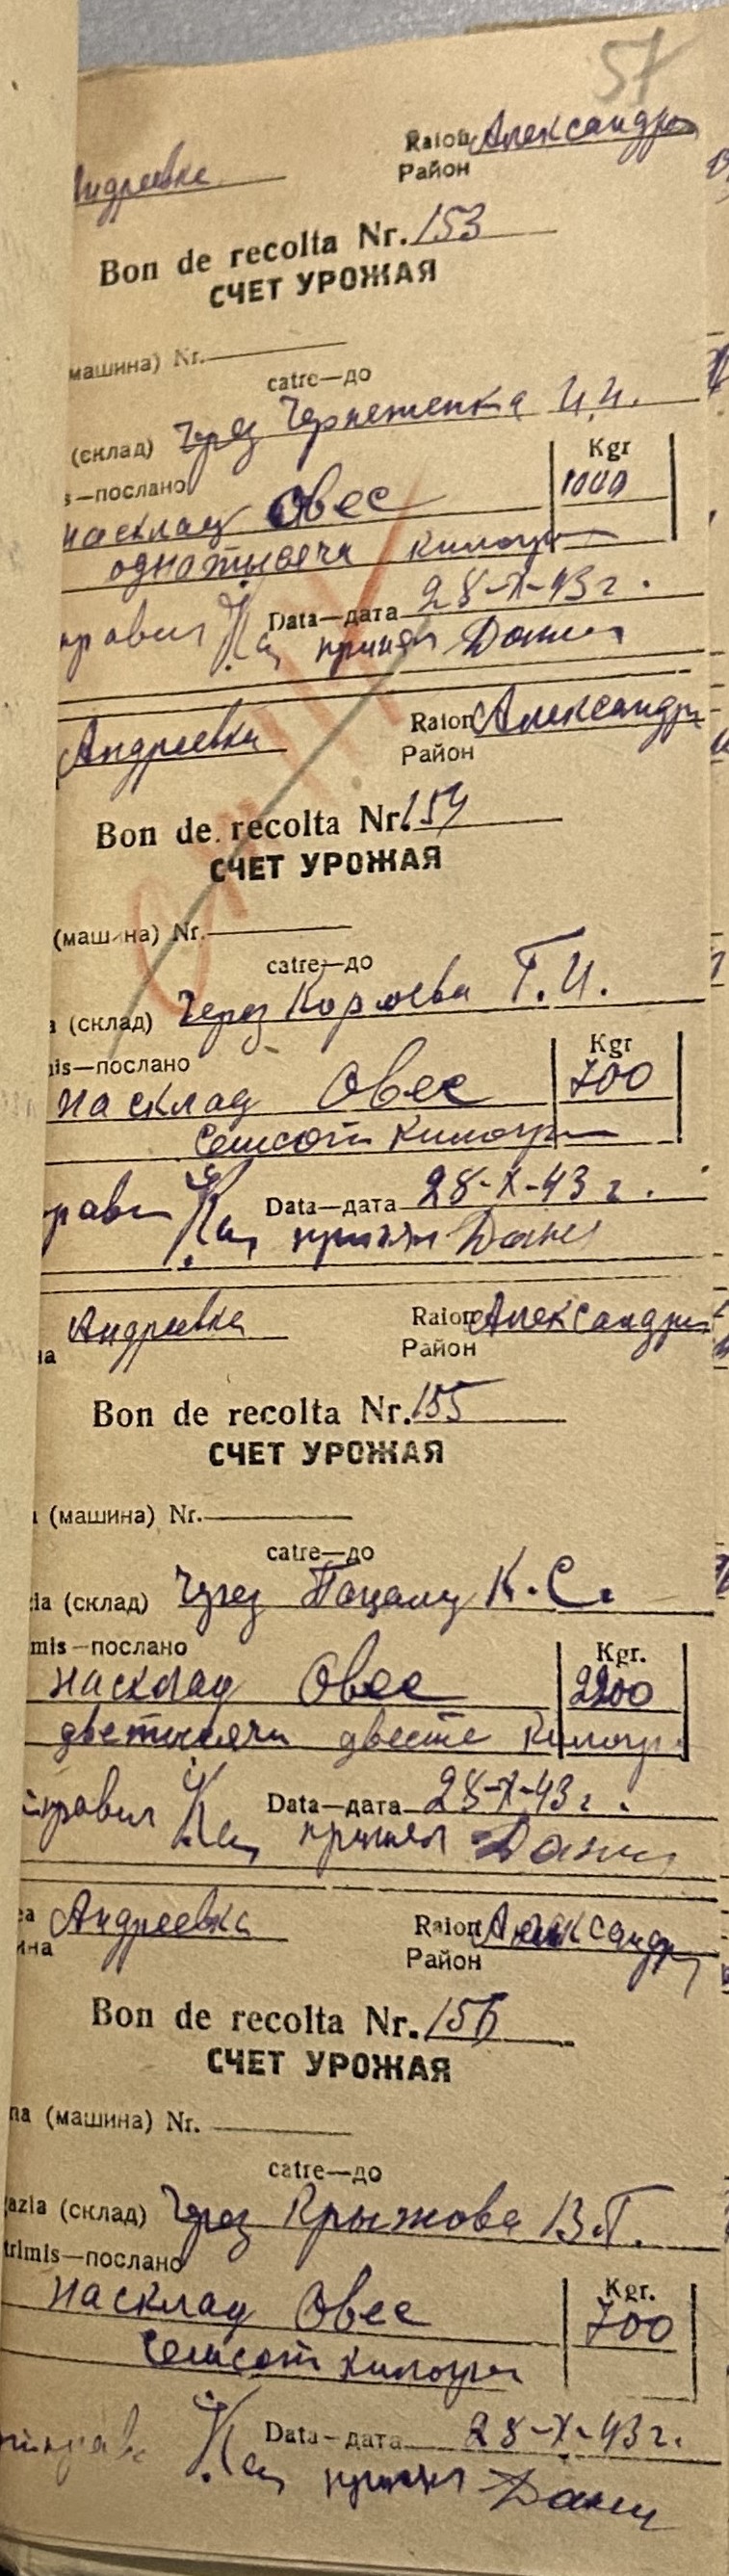 57
Андреевка Raion Александр
Район
Bon de recolta Nr. 153
СЧЕТ УРОЖАЯ
машина) Nr.
catre—до
(склад) Через Чернеженка И.И.
s—послано Kgr
на склад Овес 1000
одна тысяча килогр
правил Кац Data—дата 28-X-43 г.
принял Дани
Андреевка Raion Александр
Район
Bon de recolta Nr. 154
СЧЕТ УРОЖАЯ
(машина) Nr.
catre—до
a (склад) Через Королева Г.И.
is—послано Kgr
на склад Овес 700
семсот килогр
прави Кац Data—дата 28-X-43 г.
принял Дани
Андреевка Raion Александр
на Район
Bon de recolta Nr. 155
СЧЕТ УРОЖАЯ
(машина) Nr.
catre—до
ia (склад) Через К.С.
mis—послано Kgr.
на склад Овес 2200
две тысячи двести килогр.
правил Кац Data—дата 28-X-43 г.
принял Дани
ea Андреевка Raion Александр
ина Район
Bon de recolta Nr. 156
СЧЕТ УРОЖАЯ
na (машина) Nr.
catre—до
azia (склад) Через Крыжова В.Г.
trimis—послано Kgr.
на склад Овес 700
семсот килогр
Кац Data—дата 28-X-43 г.
принял Дани